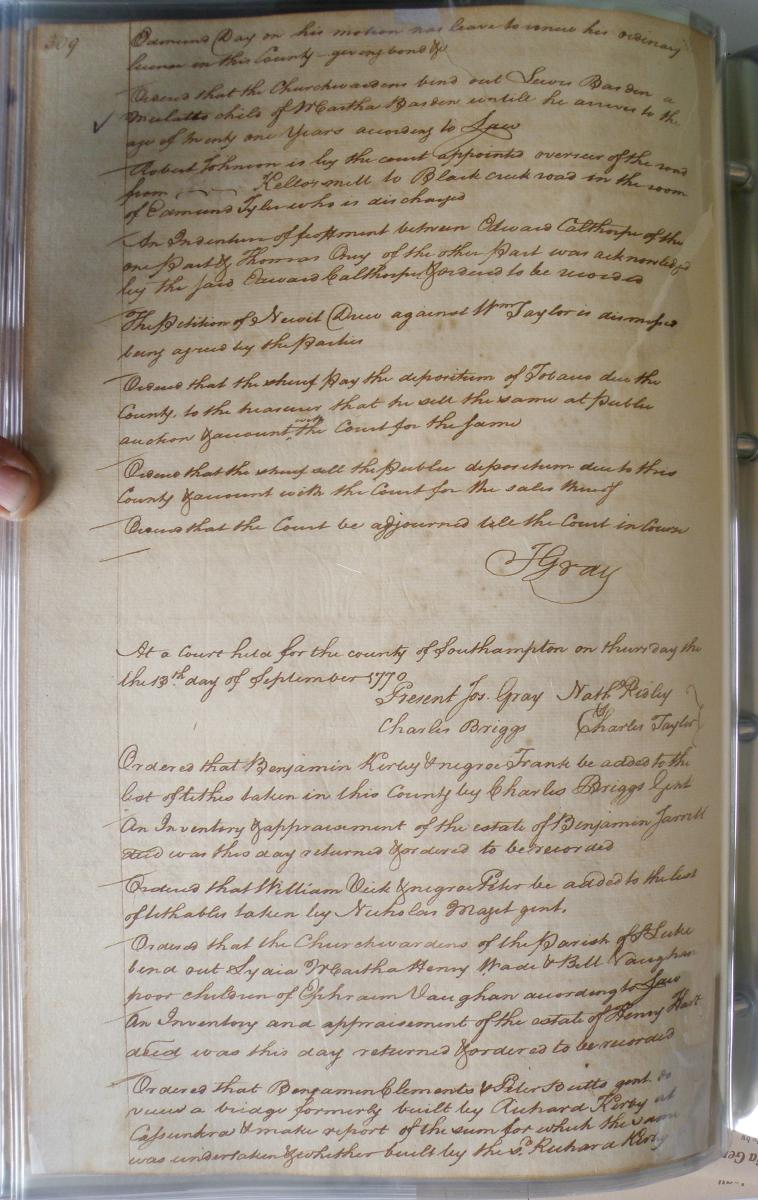 309
Edmund Day on his motion has leave to renew his ordinary
licence in this County giving bond &c
Ordered that the Churchwardens bind out Lewis Basden a
Mulatto child of Martha Basden untill he arrives to the
age of twenty one Years according to Law
Robert Johnson is by the court appointed overseer of the road
from Kellos mill to Black creek road in the room
of Edmund Tyler who is discharged
An Indenture of feoffment between Edward Calthorpe of the
one Part & Thomas of the other Part was acknowledged
by the said Edward Calthorpe & ordered to be recorded
The Petition of Newit Drew against Wm Taylor is dismissed
being agreed by the Parties
Ordered that the sheriff Pay the depositum of Tobacco due the
County to the treasurer that he sell the same at Public
auction & account with the Court for the same
Ordered that the sheriff sell the Public depositum due to this
County & account with the Court for the sales thereof
Ordered that the Court be adjourned till the Court in Course
J Gray
At a Court held for the county of Southampton on thursday the
the 13th day of September 1770
Present Jos. Gray Nathl Ridley
Charles Briggs & Charles Taylor
Ordered that Benjamin Kirby & negroe Frank be added to the
list of tithes taken in this County by Charles Briggs Gent
An Inventory & appraisement of the estate of Benjamin Jarrell
deced was this day returned & ordered to be recorded
Ordered that William Vick & negroe Peter be added to the list
of tithables taken by Nicholas Maget gent.
Ordered that the Churchwardens of the Parish of St Luke
bind out Lydia Martha Henry Wade & Bell Vaughan
poor children of Ephraim Vaughan according to Law
An Inventory and appraisement of the estate of Henry Hart
deced was this day returned & ordered to be recorded
Ordered that Benjamin Clements & Peter Butts gent. do
view a bridge formerly built by Richard Kirby at
& make report of the sum for which the same
was undertaken & whether built by the sd. Richard Kirby